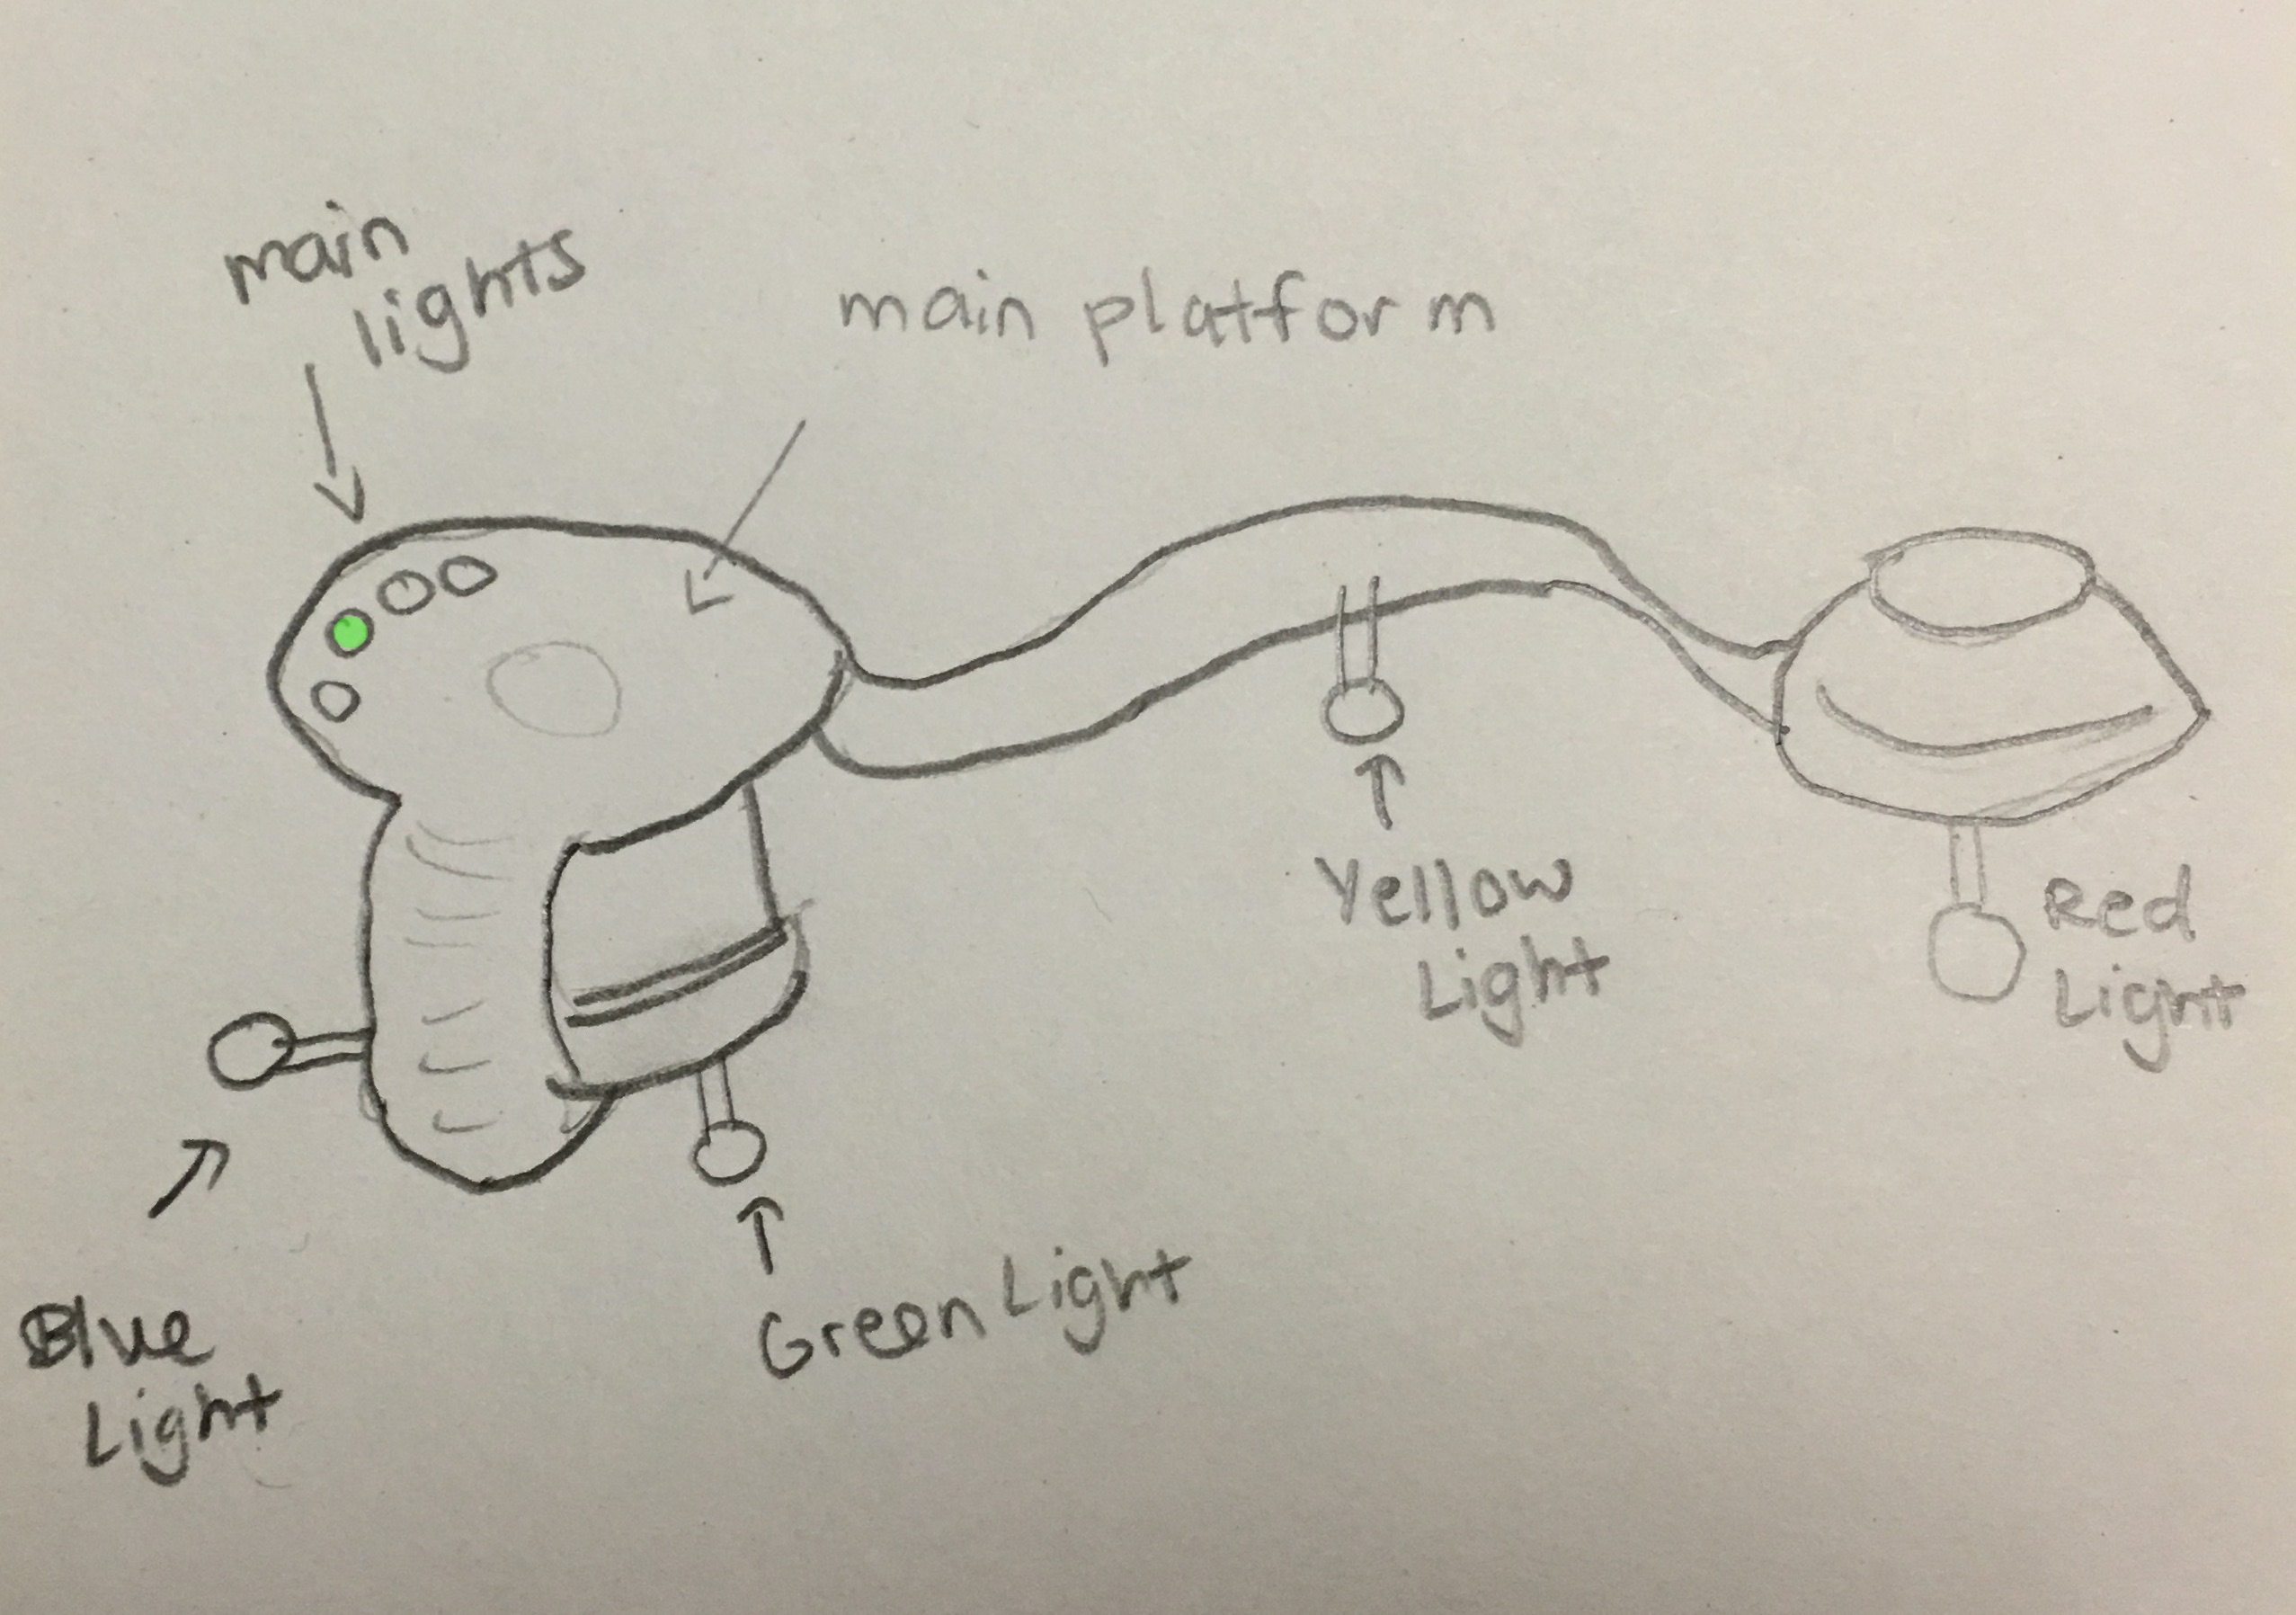 main
lights
main platform
Yellow
Light
Red
Light
Blue
Light
Green Light